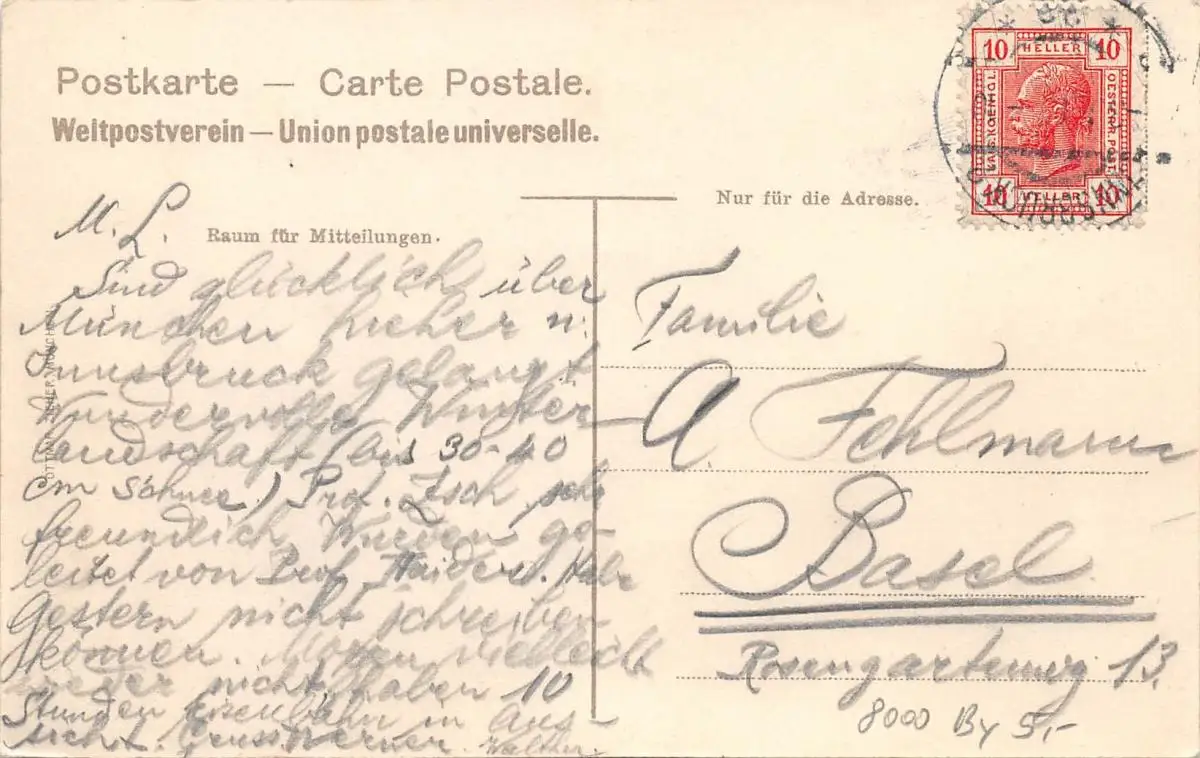 Postkarte — Carte Postale.
Weltpostverein — Union postale universelle.
10 HELLER 10
KAIS. KOENIGL.
OESTERR. POST
10 HELLER 10
Nur für die Adresse.
Raum für Mitteilungen.
M. L.
Sind glücklich über
München hieher u.
Innsbruck gelangt
Wundervolle Winter
landschaft (bis 30-40
cm Schnee.) Prof. sehr
freundlich Wurden ge-
leitet von Prof. Haider u.
Gestern nicht schreiben
können. Morgen vielleicht
wieder nicht, haben 10
Stunden Eisenbahn in Aus-
sicht. Gruss Werner. Walther.
Familie
A. Fehlmann
Basel
Rosengartenweg 13.
8000 By 5,-